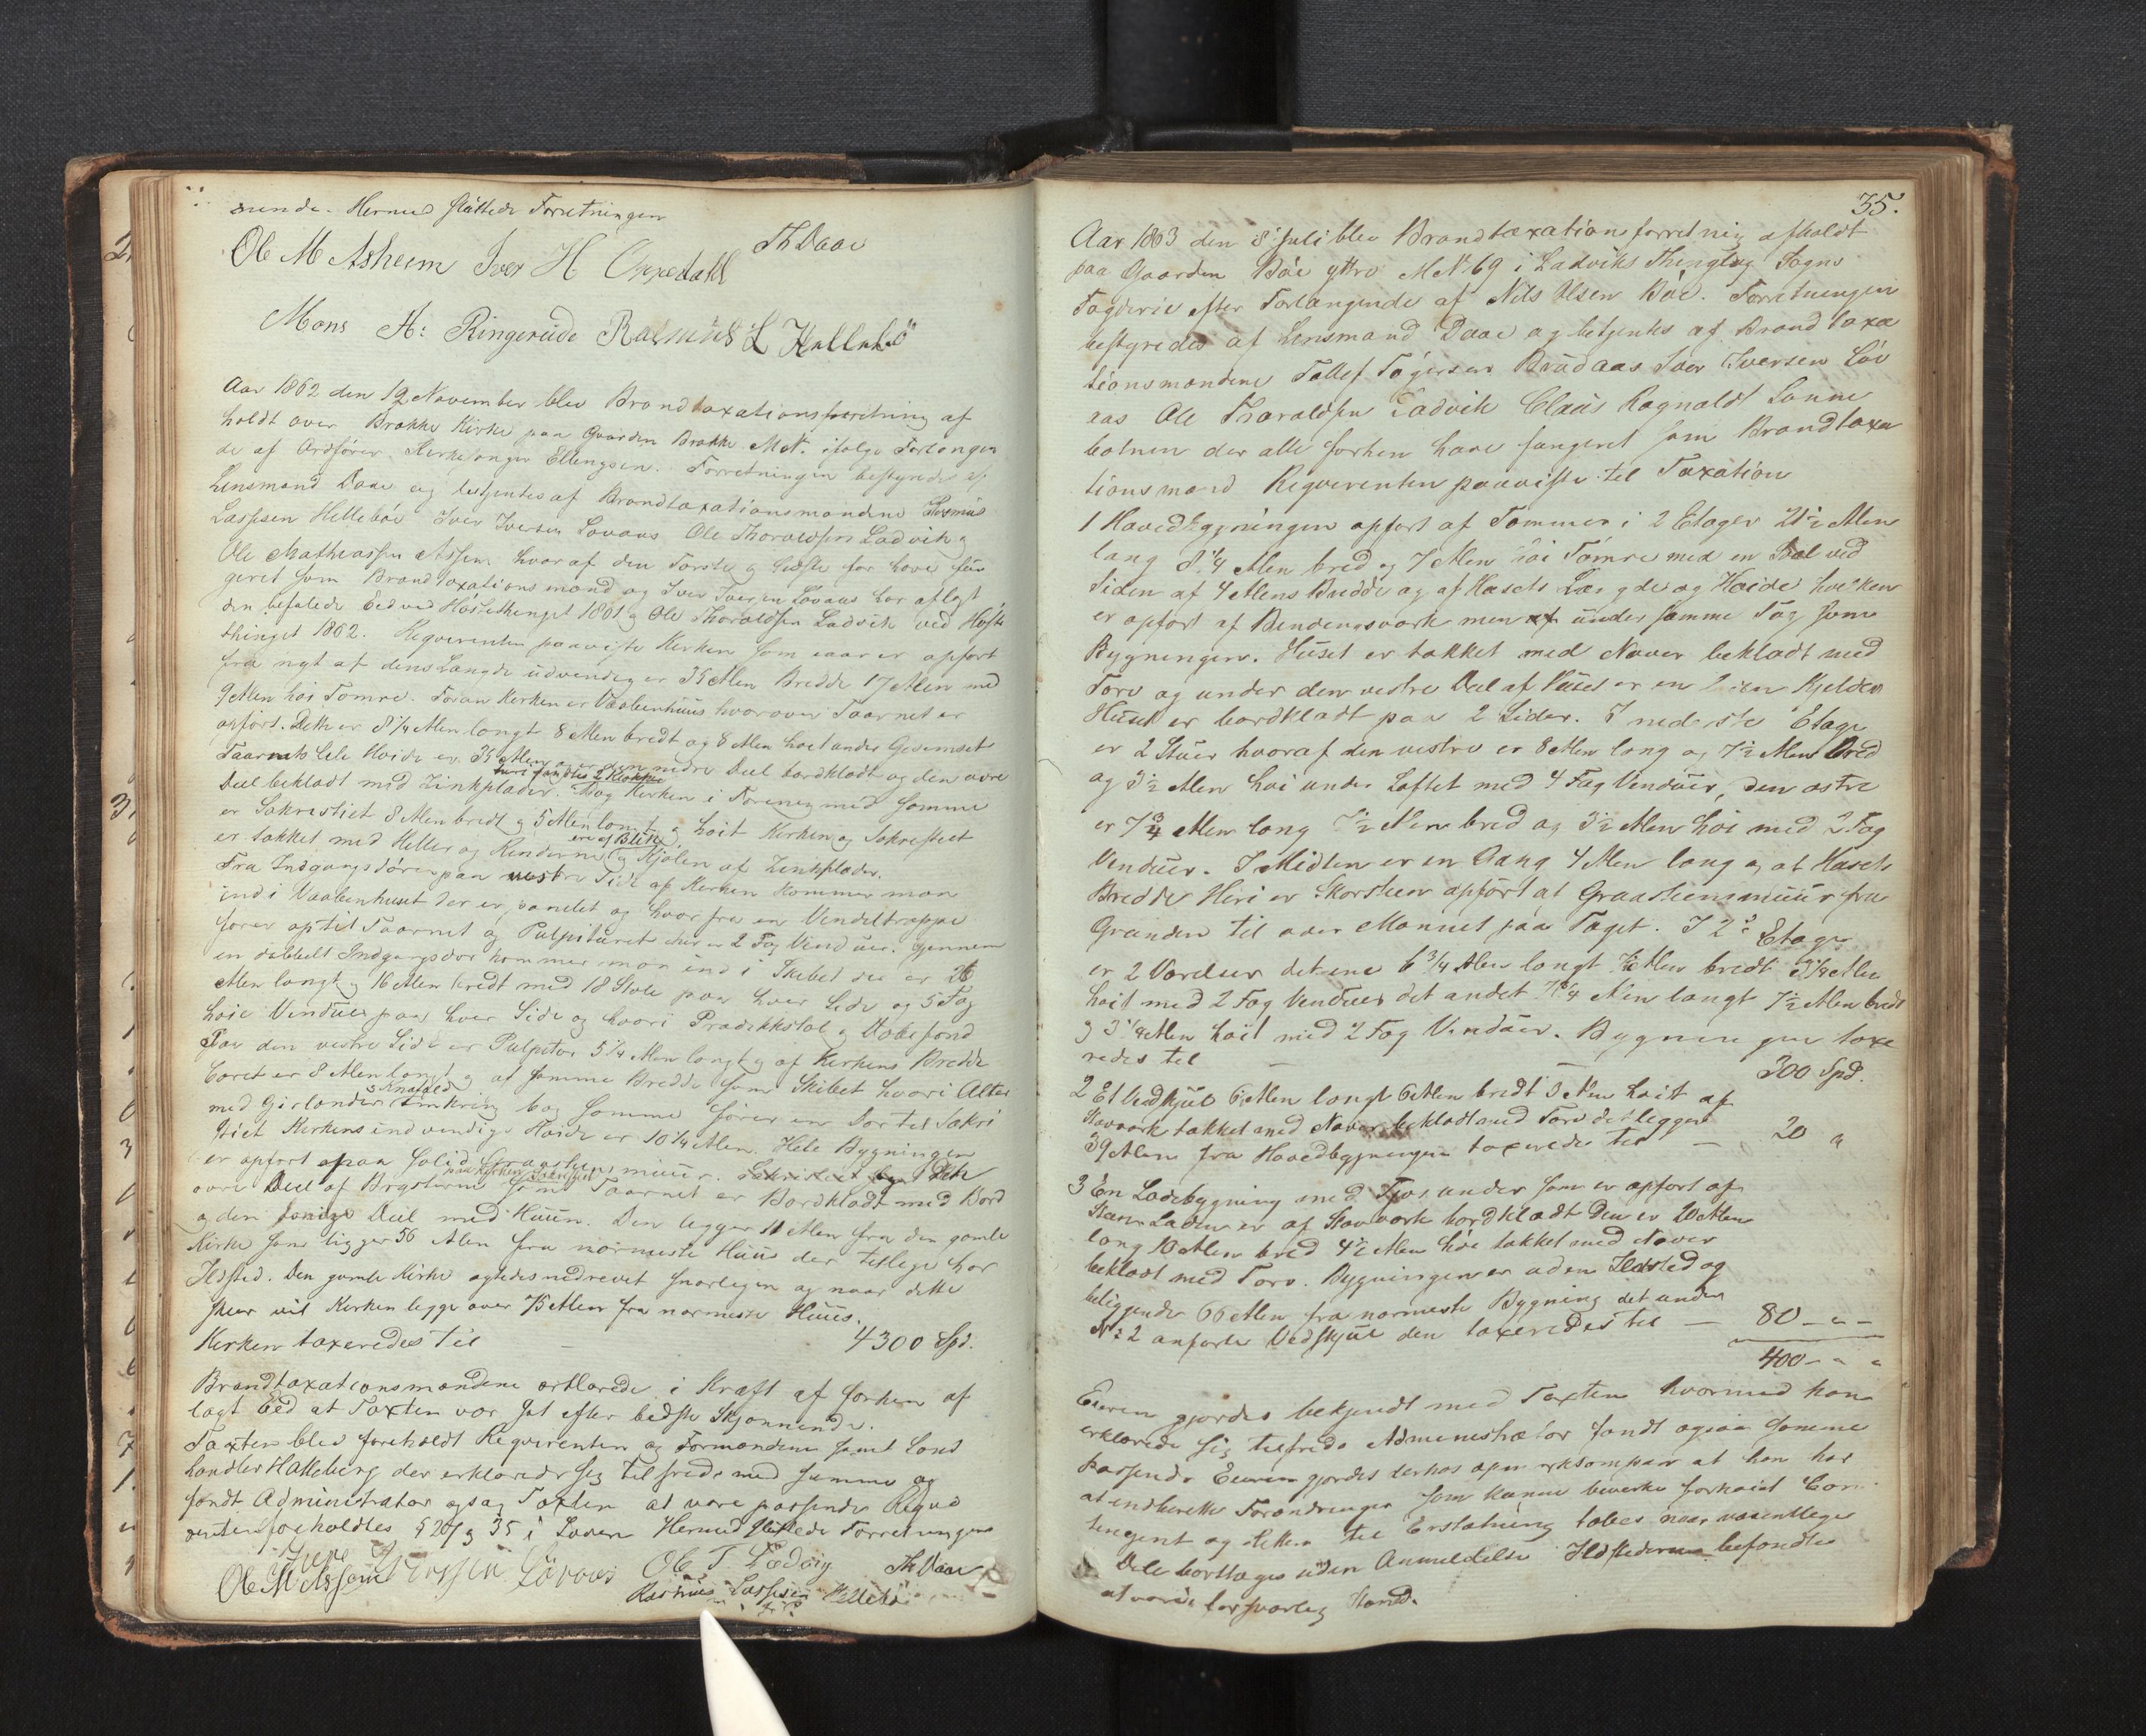 sunde. Hermed sluttede Forretningen
Th Daae
Ole M Asheim Iver H Oppedahl
Mons A: Ringereide Rasmus L Hellebö
Aar 1862 den 19 November blev Brandtaxationsforretning af
holdt over Brække Kirke paa Gaarden Brække MN. ifölge Forlangen
de af Ordförer Ellengsen. Forretningen bestyredes af
Lensmand Daae og betjentes af Brandtaxationsmændene Rasmus
Lassesen Hellebøe Iver Iversen Lovaas Ole Thoraldsen Ladvik og
Ole Mathiassen Assem hvoraf den Første og Sidste før have fun
geret som Brandtaxationsmænd og Iver Iversen Lövaas har aflagt
den befalede Eed ved Høstethinget 1861 og Ole Thoraldsen Ladvik ved Høste
thinget 1862. Reqvirenten paaviste Kirken som iaar er opført
fra nyt af dens Længde udvendig er 35 Alen Bredde 17 Alen med
9 Alen høi Tømre. Foran Kirken er Vaabenhuus hvorover Taarnet er
opført. Dette er 8 1/4 Alen langt 8 Alen bredt og 8 Alen høit under Gesimset
Taarnets hele Høide er 35 Alen og er den nedre Deel bordklædt og den øvre
hvori findes 2 Klokker
Deel beklædt med Zinkplader. Bag Kirken i Forening med samme
er Sakrestiet 8 Alen bredt og 5 Alen langt og høit Kirken og Sakrestiet
ere af Blik
er tækket med Heller og Renderne og Kjölen af Zinkplader.
Fra Indgangsdören paa vestre Side af Kirken kommer man
ind i Vaabenhuset der er panelet og hvorfra en Vendeltrappe
fører op til Taarnet og Pulpituret her er 2 Fag Vinduer. Gjennem
en dobbelt Indgangsdør kommer man ind i Skibet der er 26
Alen langt og 16 Alen bredt med 18 Stole paa hver Side og 5 Fag
høie Vinduer paa hver Side og hvori Prædikkstol og Døbefond
Paa den vestre Side er Pulpitur 5 1/4 Alen langt og af Kirkens Bredde
Coret er 8 Alen langt og af samme Bredde som Skibet hvori Alter
med Girlander omkring bag samme fører en Dør til Sakri
stiet Kirkens indvendige Høide er 10 1/4 Alen. Hele Bygningen
er opført paa solid Graasteensmuur. Dette
øvre Deel af Taarnet er Bordklædt med Bord
og den Deel med Huun. Den ligger 11 Alen fra den gamle
Kirke som ligger 56 Alen fra nærmeste Huus der tillige har
Ildsted. Den gamle Kirke agtedes nedrevet snarligen og naar dette
skeer vil Kirken ligge over 75 Alen fra nærmeste Huus.
Kirken taxeredes til — 4300 Spd.
Brandtaxationsmændene erklærede i Kraft af forhen af
lagt Eed at Taxten var sat efter bedste Skjønnende.
Taxten blev foreholdt Reqvirenten og Formændene samt Land
handler Halleberg der erklærede sig tilfreds med samme og
fandt Administrator ogsaa Taxten at være passende Reqvi
renten foreholdtes § 20 og 35 i Loven Hermed sluttede Forretningen
Iver Iversen Lövaas Ole T Ladvig Th Daae
Ole M Assem
Rasmus Lassesen Hellebö
35.
Aar 1863 den 8 Juli blev Brandtaxationsforretnig afholdt
paa Gaarden Bøe yttre MN 69 i Ladviks Thinglag Sogns
Fogderie efter Forlangende af Nils Olsen Bøe. Forretningen
bestyredes af Lensmand Daae og betjentes af Brandtaxa
tionsmændene Tollef Tögersen Brudaas Iver Iversen Löv
aas Ole Thoraldsen Ladvik Claus Ragnald Sønne
botnen der alle forhen have fungeret som Brandtaxa
tionsmænd Reqvirenten paaviste til Taxation
1 Hovedbygningen opført af Tømmer i 2 Etager 21 1/2 Alen
lang 8 1/4 Alen bred og 7 Alen høi Tømre med en Sval ved
Siden af 4 Alens Bredde og af Husets Længde og Høide hvilken
er opført af Bindingsværk men under samme Tag som
Bygningen. Huset er tækket med Næver beklædt med
Torv og under den vestre Deel af Huset er en liden Kjelder
Huset er bordklædt paa 2 Sider. I nederste Etage
er 2 Stuer hvoraf den vestre er 8 Alen lang og 7 1/2 Alen Bred
og 3 1/2 Alen høi under Loftet med 4 Fag Vinduer, den østre
er 7 3/4 Alen lang 7 1/2 Alen bred og 3 1/2 Alen høi med 2 Fag
Vinduer. I Midten er en Gang 4 Alen lang og af Husets
Bredde Heri er Skorsteen opført af Graasteensmuur fra
Grunden til over Mønnet paa Taget. I 2den Etage
er 2 Værelser det ene 6 3/4 Alen langt 7 1/2 Alen bredt 3 1/4 Alen
høit med 2 Fag Vinduer det andet 7 3/4 Alen langt 7 1/2 Alen bredt
og 3 1/4 Alen høit med 2 Fag Vinduer. Bygningen taxe
redes til — 300 Spd.
2 Et Vedskjul 6 Alen langt 6 Alen bredt 3 Alen høit af
Stavværk tækket med Næver beklædt med Torv det ligger
39 Alen fra Hovedbygningen taxeredes til — 20 "
3 En Ladebygning med Fjøs under som er opført af
Steen Laden er af Stavværk bordklædt Den er 20 Alen
lang 10 Alen bred 4 1/2 Alen høi tækket med Næver
beklædt med Torv. Bygningen er uden Ildsted og
beliggende 66 Alen fra nærmeste Bygning det under
N: 2 anførte Vedskjul den taxeredes til — 80 — " —
400 — " "
Eieren gjordes bekjendt med Taxten hvormed han
erklærede sig tilfreds Administrator fandt ogsaa samme
passende Eieren gjordes derhos opmærksom paa at han har
at indberette Forandringer som kunne bevirke forhøiet Con
tingent og Retten til Erstatning tabes naar væsentlige
Dele borttages uden Anmeldelse Ildstederne befandtes
at være i forsvarlig Stand.